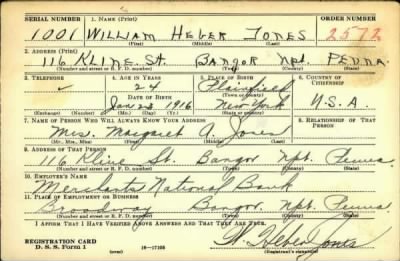 SERIAL NUMBER 1. NAME (Print) ORDER NUMBER
1001 WILLIAM HEBER JONES 2572
(First) (Middle) (Last)
2. ADDRESS (Print)
116 KLINE ST. BANGOR Npt. PENNA.
(Number and street or R. F. D. number) (Town) (County) (State)
3. TELEPHONE 4. AGE IN YEARS 5. PLACE OF BIRTH 6. COUNTRY OF CITIZENSHIP
✓ 24 Plainfield
DATE OF BIRTH (Town or county)
Jan 23 1916 New York U.S.A.
(Mo.) (Day) (Yr.) (State or country)
7. NAME OF PERSON WHO WILL ALWAYS KNOW YOUR ADDRESS 8. RELATIONSHIP OF THAT PERSON
Mrs. Margaret A. Jones
(Mr., Mrs., Miss) (First) (Middle) (Last)
9. ADDRESS OF THAT PERSON
116 Kline St. Bangor Npt. Penna
(Number and street or R. F. D. number) (Town) (County) (State)
10. EMPLOYER'S NAME
Merchants National Bank
11. PLACE OF EMPLOYMENT OR BUSINESS
Broadway Bangor Npt. Penna
(Number and street or R. F. D. number) (Town) (County) (State)
I AFFIRM THAT I HAVE VERIFIED ABOVE ANSWERS AND THAT THEY ARE TRUE.
REGISTRATION CARD
D. S. S. Form 1 (over) W. Heber Jones
(Registrant's signature)